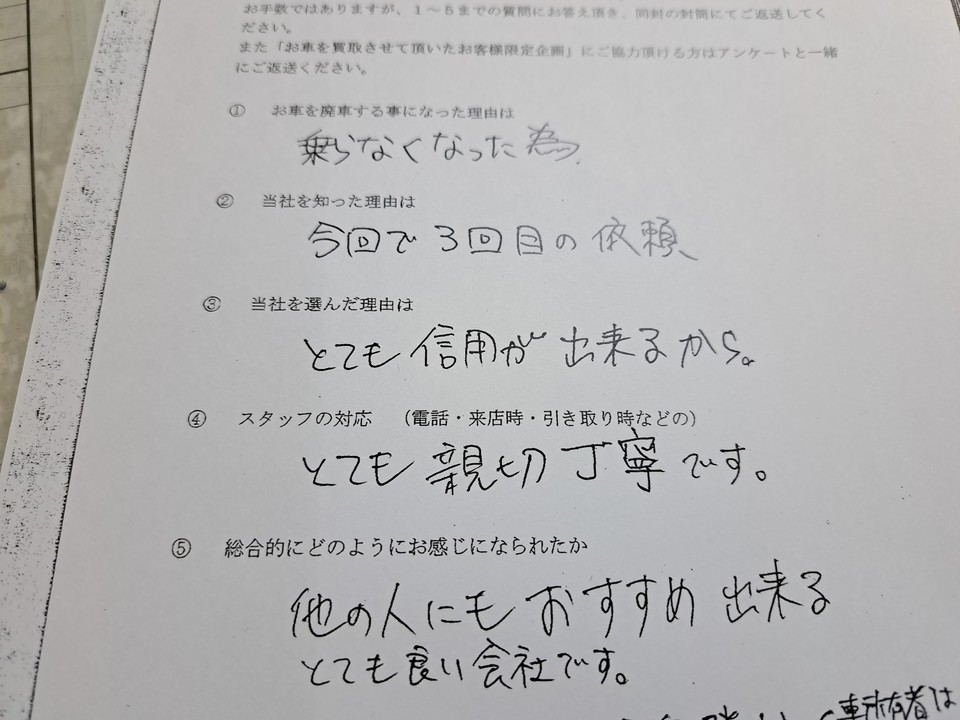 お手数ではありますが、1～5までの質問にお答え頂き、同封の封筒にてご返送してく
ださい。
また「お車を買取させて頂いたお客様限定企画」にご協力頂ける方はアンケートと一緒
にご返送ください。
① お車を廃車する事になった理由は
乗らなくなった為
② 当社を知った理由は
今回で3回目の依頼
③ 当社を選んだ理由は
とても信用が出来るから。
④ スタッフの対応 （電話・来店時・引き取り時などの）
とても親切丁寧です。
⑤ 総合的にどのようにお感じになられたか
他の人にもおすすめ出来る
とても良い会社です。
有者は